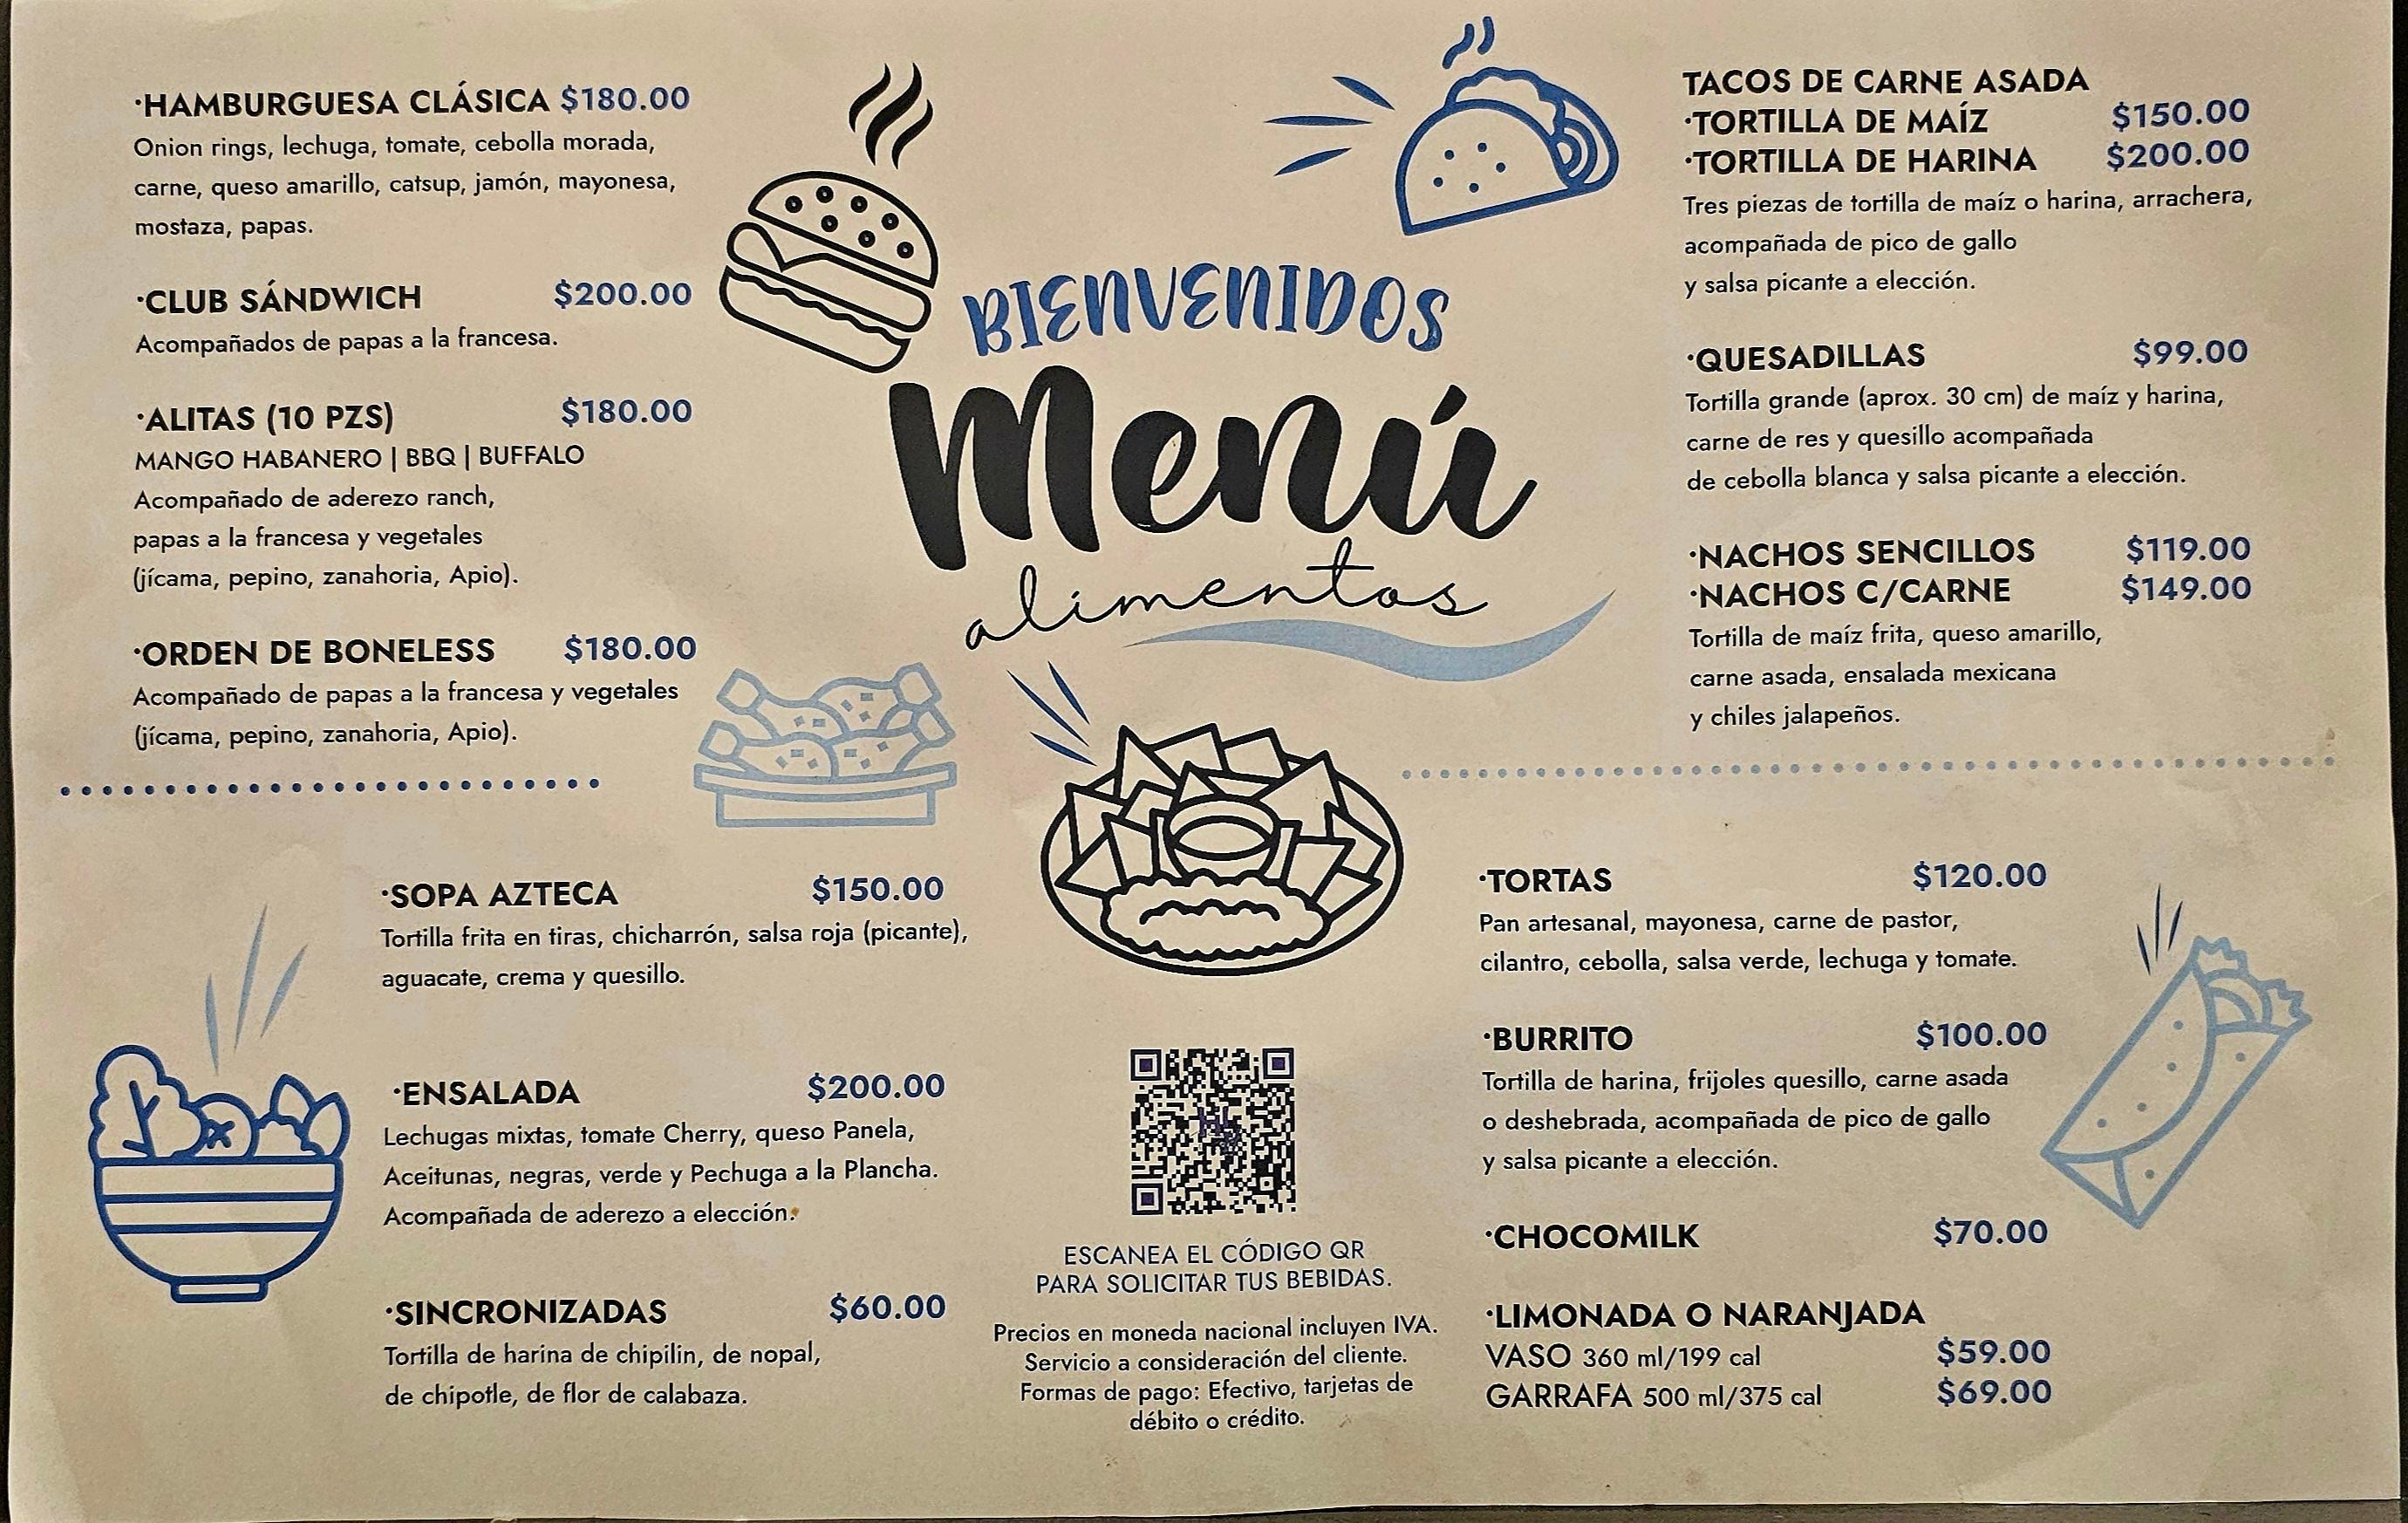 ·HAMBURGUESA CLÁSICA $180.00
Onion rings, lechuga, tomate, cebolla morada,
carne, queso amarillo, catsup, jamón, mayonesa,
mostaza, papas.
·CLUB SÁNDWICH $200.00
Acompañados de papas a la francesa.
·ALITAS (10 PZS) $180.00
MANGO HABANERO | BBQ | BUFFALO
Acompañado de aderezo ranch,
papas a la francesa y vegetales
(jícama, pepino, zanahoria, Apio).
·ORDEN DE BONELESS $180.00
Acompañado de papas a la francesa y vegetales
(jícama, pepino, zanahoria, Apio).
BIENVENIDOS
Menú
alimentos
TACOS DE CARNE ASADA
·TORTILLA DE MAÍZ $150.00
·TORTILLA DE HARINA $200.00
Tres piezas de tortilla de maíz o harina, arrachera,
acompañada de pico de gallo
y salsa picante a elección.
·QUESADILLAS $99.00
Tortilla grande (aprox. 30 cm) de maíz y harina,
carne de res y quesillo acompañada
de cebolla blanca y salsa picante a elección.
·NACHOS SENCILLOS $119.00
·NACHOS C/CARNE $149.00
Tortilla de maíz frita, queso amarillo,
carne asada, ensalada mexicana
y chiles jalapeños.
·SOPA AZTECA $150.00
Tortilla frita en tiras, chicharrón, salsa roja (picante),
aguacate, crema y quesillo.
·ENSALADA $200.00
Lechugas mixtas, tomate Cherry, queso Panela,
Aceitunas, negras, verde y Pechuga a la Plancha.
Acompañada de aderezo a elección.
·SINCRONIZADAS $60.00
Tortilla de harina de chipilin, de nopal,
de chipotle, de flor de calabaza.
ESCANEA EL CÓDIGO QR
PARA SOLICITAR TUS BEBIDAS.
Precios en moneda nacional incluyen IVA.
Servicio a consideración del cliente.
Formas de pago: Efectivo, tarjetas de
débito o crédito.
·TORTAS $120.00
Pan artesanal, mayonesa, carne de pastor,
cilantro, cebolla, salsa verde, lechuga y tomate.
·BURRITO $100.00
Tortilla de harina, frijoles quesillo, carne asada
o deshebrada, acompañada de pico de gallo
y salsa picante a elección.
·CHOCOMILK $70.00
·LIMONADA O NARANJADA
VASO 360 ml/199 cal $59.00
GARRAFA 500 ml/375 cal $69.00